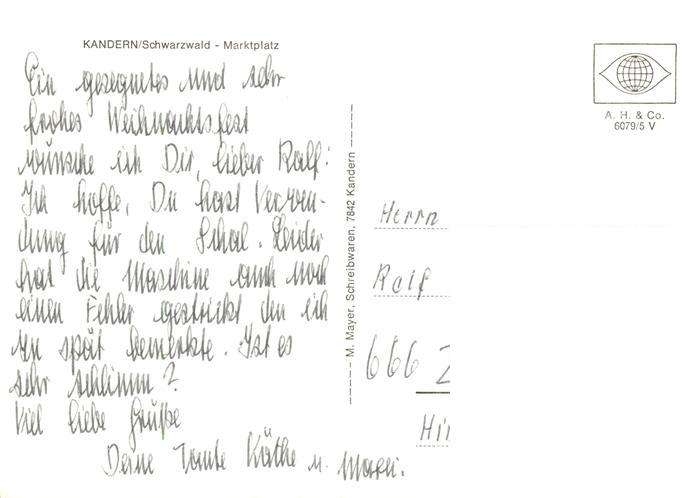 KANDERN/Schwarzwald - Marktplatz
Ein gesegnetes und sehr
frohes Weihnachtsfest
wünsche ich Dir, lieber Ralf!
Ich hoffe, Du hast Verwen-
dung für den Schal. Leider
hat die Maschine auch noch
einen Fehler gestrickt den ich
zu spät bemerkte. Ist es
sehr schlimm?
Viel liebe Grüße
Deine Tante Käthe u.
M. Mayer, Schreibwaren, 7842 Kandern
A. H. & Co.
6079/5 V
Herrn
Ralf
666
Hi